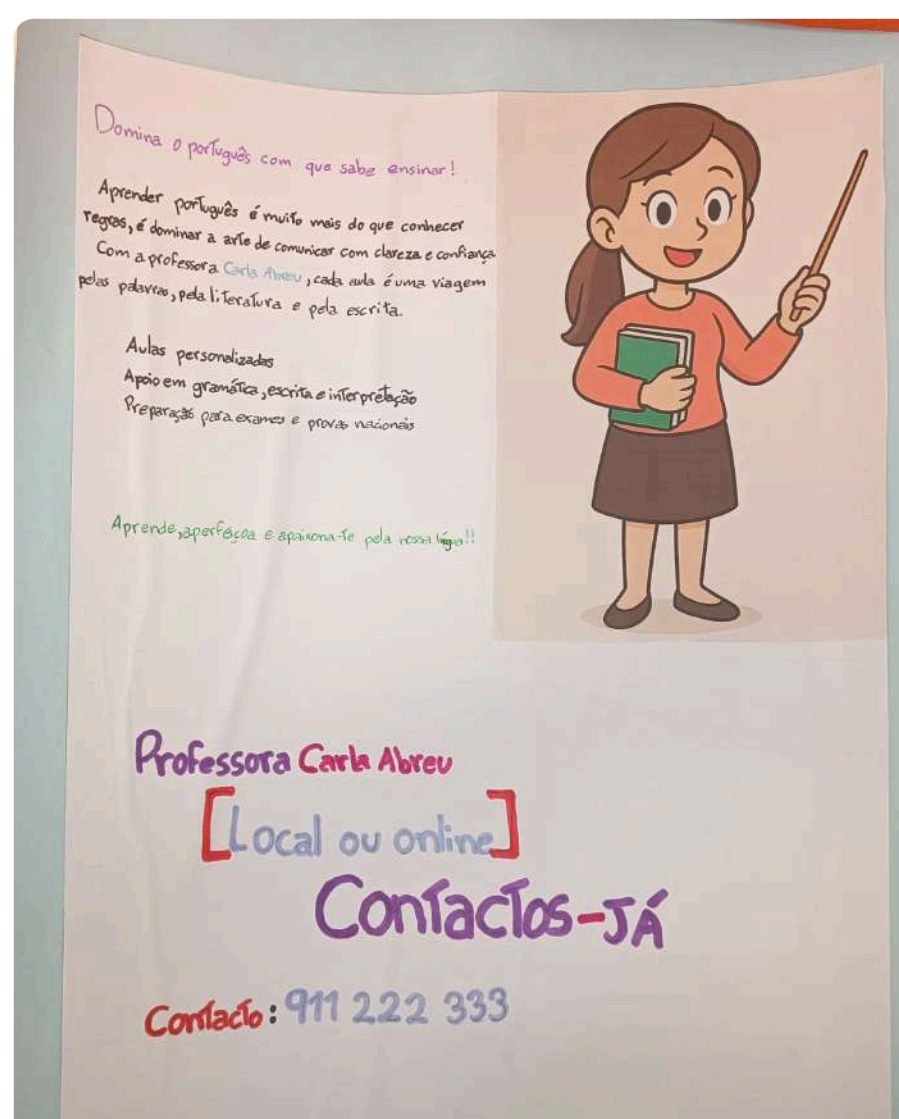 Domina o português com que sabe ensinar!
Aprender português é muito mais do que conhecer
regras, é dominar a arte de comunicar com clareza e confiança
Com a professora Carla Abreu, cada aula é uma viagem
pelas palavras, pela literatura e pela escrita.
Aulas personalizadas
Apoio em gramática, escrita e interpretação
Preparação para exames e provas nacionais
Aprende, aperfeçoa e apaixona-te pela nossa lígua!!
Professora Carla Abreu
[Local ou online]
Contactos-JÁ
Contacto: 911 222 333